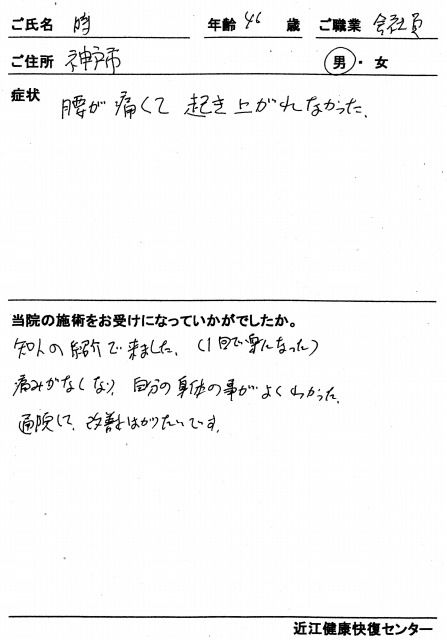 ご氏名 年齢 46 歳 ご職業 会社員
ご住所 神戸市 男・女
症状 腰が痛くて起き上がれなかった.
当院の施術をお受けになっていかがでしたか。
知人の紹介で来ました.(1回で楽になった)
痛みがなくなり、自分の身体の事がよくわかった.
通院して、改善をはかりたいです.
近江健康快復センター